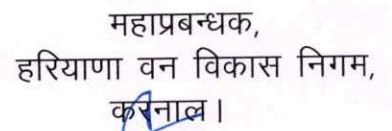 महाप्रबन्धक,
हरियाणा वन विकास निगम,
करनाल।